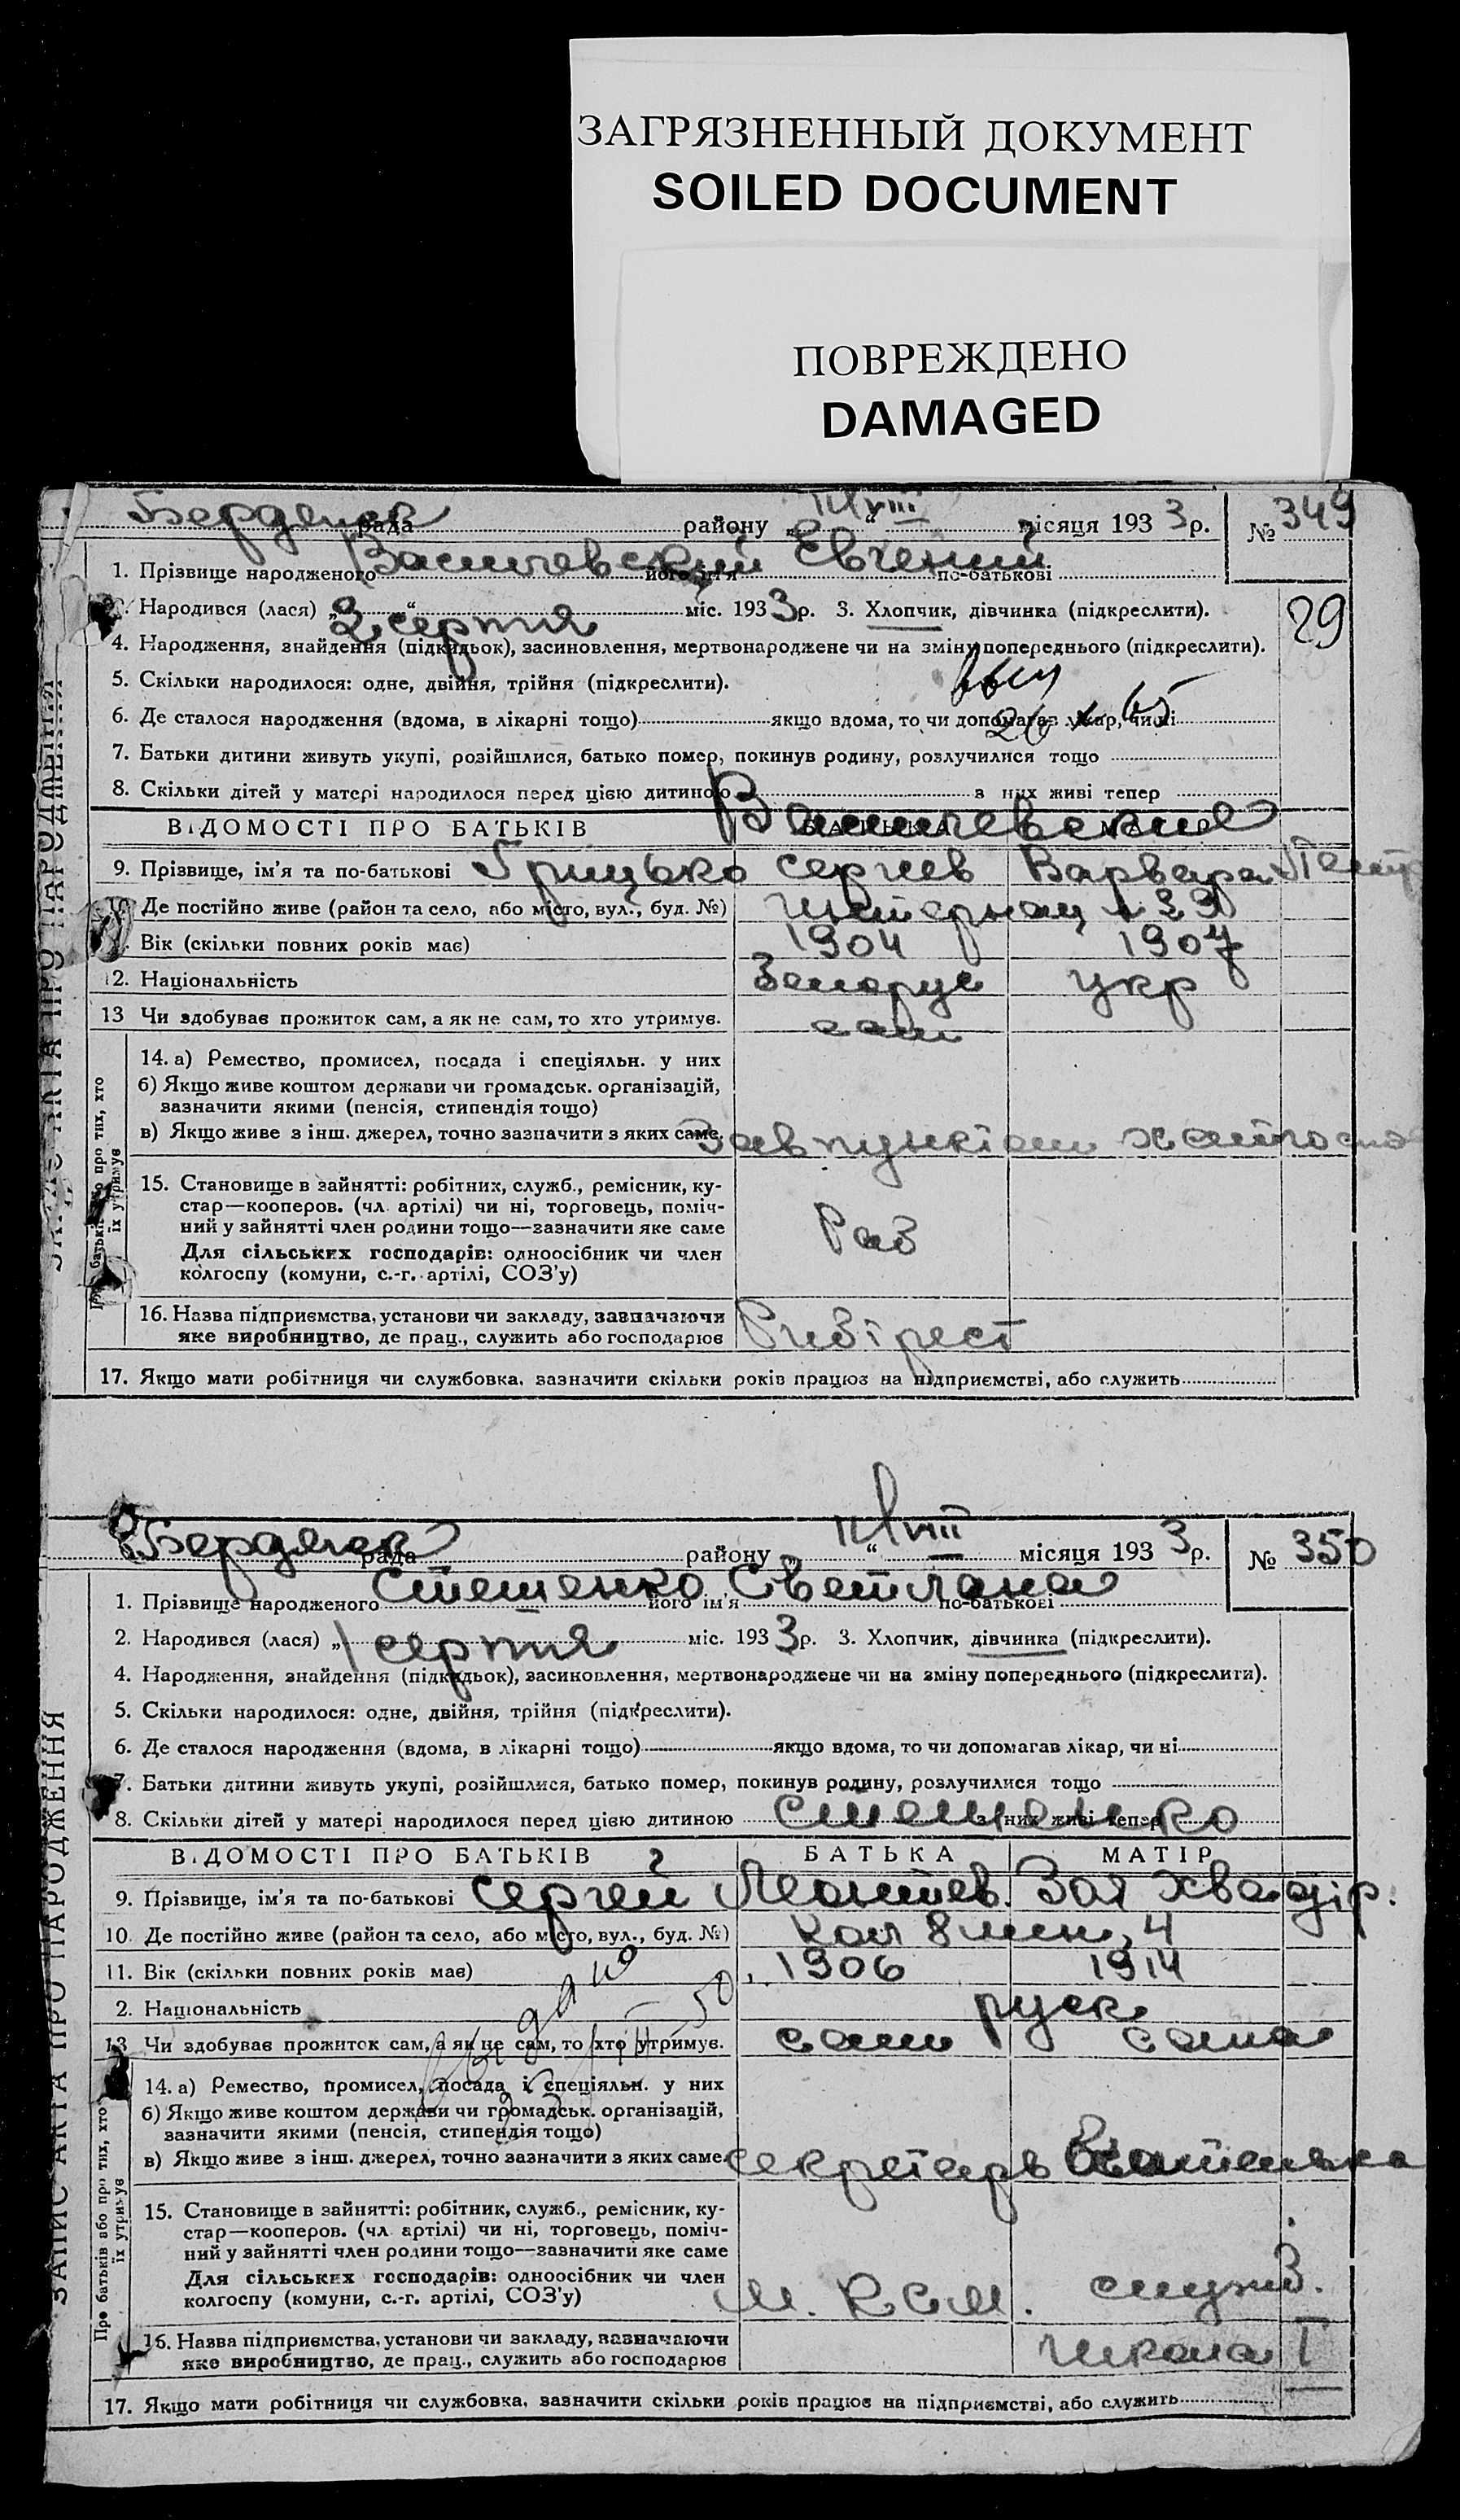 ЗАГРЯЗНЕННЫЙ ДОКУМЕНТ
SOILED DOCUMENT
ПОВРЕЖДЕНО
DAMAGED
Бердянск рада району „ 11/VIII “ місяця 193 3 р. № 349
1. Прізвище народженого його ім'я Евгений по-батькові
2. Народився (лася) „ 2 серпня “ міс. 193 3 р. 3. Хлопчик, дівчинка (підкреслити).
29
4. Народження, знайдення (підкидьок), засиновлення, мертвонароджене чи на зміну попереднього (підкреслити).
5. Скільки народилося: одне, двійня, трійня (підкреслити).
6. Де сталося народження (вдома, в лікарні тощо) якщо вдома, то чи допомагав лікар, чи ні
26 X 65
7. Батьки дитини живуть укупі, розійшлися, батько помер, покинув родину, розлучилися тощо
8. Скільки дітей у матері народилося перед цією дитиною з них живі тепер
ВІДОМОСТІ ПРО БАТЬКІВ БАТЬКА МАТІР
9. Прізвище, ім'я та по-батькові Грицько Сергиев Варвара Петр
10. Де постійно живе (район та село, або місто, вул., буд. №)
11. Вік (скільки повних років має) 1904 1907
12. Національність Белорус Укр
13 Чи здобуває прожиток сам, а як не сам, то хто утримує. сам
14. а) Ремество, промисел, посада і спеціяльн. у них
б) Якщо живе коштом держави чи громадськ. організацій,
зазначити якими (пенсія, стипендія тощо)
в) Якщо живе з інш. джерел, точно зазначити з яких саме. Зав пунктом
15. Становище в зайнятті: робітник, служб., ремісник, ку-
стар—кооперов. (чл. артілі) чи ні, торговець, поміч-
ний у зайнятті член родини тощо—зазначити яке саме
Для сільських господарів: одноосібник чи член
колгоспу (комуни, с.-г. артілі, СОЗ'у)
Раб
16. Назва підприємства, установи чи закладу, зазначаючи
яке виробництво, де прац., служить або господарює Рибтрест
17. Якщо мати робітниця чи службовка, зазначити скільки років працює на підприємстві, або служить
ЗАПИС АКТА ПРО НАРОДЖЕННЯ
Про батьків або про тих, хто їх утримує
Бердянск рада району „ 11/VIII “ місяця 193 3 р. № 350
1. Прізвище народженого Стешенко його ім'я Светлана по-батькові
2. Народився (лася) „ 1 серпня “ міс. 193 3 р. 3. Хлопчик, дівчинка (підкреслити).
4. Народження, знайдення (підкидьок), засиновлення, мертвонароджене чи на зміну попереднього (підкреслити).
5. Скільки народилося: одне, двійня, трійня (підкреслити).
6. Де сталося народження (вдома, в лікарні тощо) якщо вдома, то чи допомагав лікар, чи ні
7. Батьки дитини живуть укупі, розійшлися, батько помер, покинув родину, розлучилися тощо
8. Скільки дітей у матері народилося перед цією дитиною з них живі тепер
Стешенко
ВІДОМОСТІ ПРО БАТЬКІВ БАТЬКА МАТІР
9. Прізвище, ім'я та по-батькові Сергей Леонтиев. Зоя
10. Де постійно живе (район та село, або місто, вул., буд. №) 4
11. Вік (скільки повних років має) 1906 1914
12. Національність руск
13 Чи здобуває прожиток сам, а як не сам, то хто утримує. сам сама
14. а) Ремество, промисел, посада і спеціяльн. у них
б) Якщо живе коштом держави чи громадськ. організацій,
зазначити якими (пенсія, стипендія тощо)
в) Якщо живе з інш. джерел, точно зазначити з яких саме. секретарь
15. Становище в зайнятті: робітник, служб., ремісник, ку-
стар—кооперов. (чл. артілі) чи ні, торговець, поміч-
ний у зайнятті член родини тощо—зазначити яке саме
Для сільських господарів: одноосібник чи член
колгоспу (комуни, с.-г. артілі, СОЗ'у)
служб.
16. Назва підприємства, установи чи закладу, зазначаючи
яке виробництво, де прац., служить або господарює Школа I
17. Якщо мати робітниця чи службовка, зазначити скільки років працює на підприємстві, або служить
ЗАПИС АКТА ПРО НАРОДЖЕННЯ
Про батьків або про тих, хто їх утримує